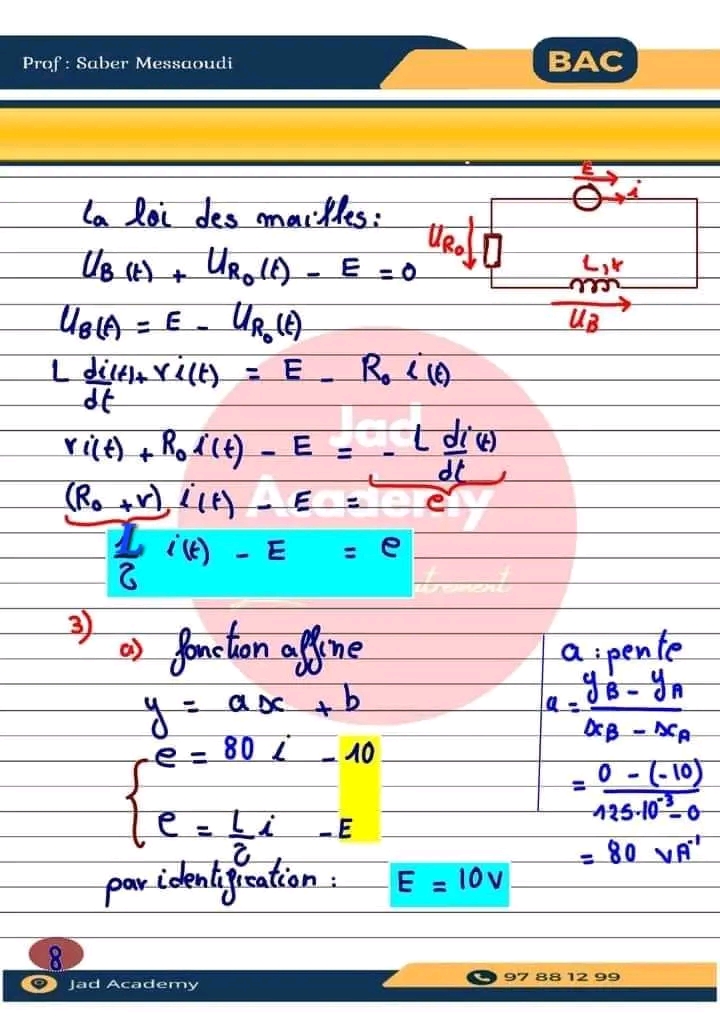 Prof : Saber Messaoudi
BAC
La loi des mailles:
U_B(t) + U_R₀(t) - E = 0
U_B(t) = E - U_R₀(t)
L di(t)/dt + ri(t) = E - R₀ i(t)
ri(t) + R₀i(t) - E = - L di(t)/dt
(R₀ + r) i(t) - E = e
L/τ i(t) - E = e
E
i
U_R₀
L, r
U_B
Jad
Academy
3)
a) fonction affine
y = ax + b
e = 80 i - 10
e = L/τ i - E
par identification : E = 10V
a : pente
a = y_B - y_A / x_B - x_A
= 0 - (-10) / 125.10⁻³ - 0
= 80 VA⁻¹
8
Jad Academy
97 88 12 99